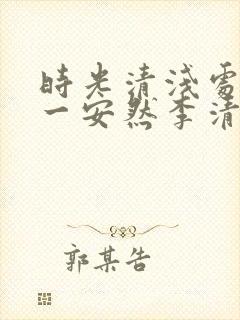 時光清淺處
一安然李清
郭某告